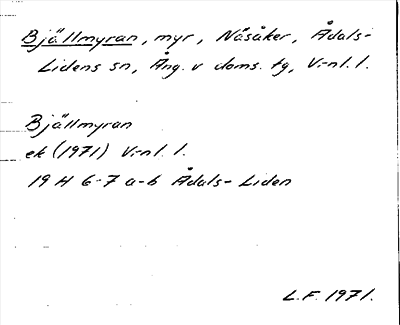 Bjällmyran, myr, Näsåker, Ådals-
Lidens sn, Ång. v doms. tg, V:nl. l.
Bjällmyran
ek (1971) V:nl. l.
19 H 6-7 a-b Ådals-Liden
L.F. 1971.